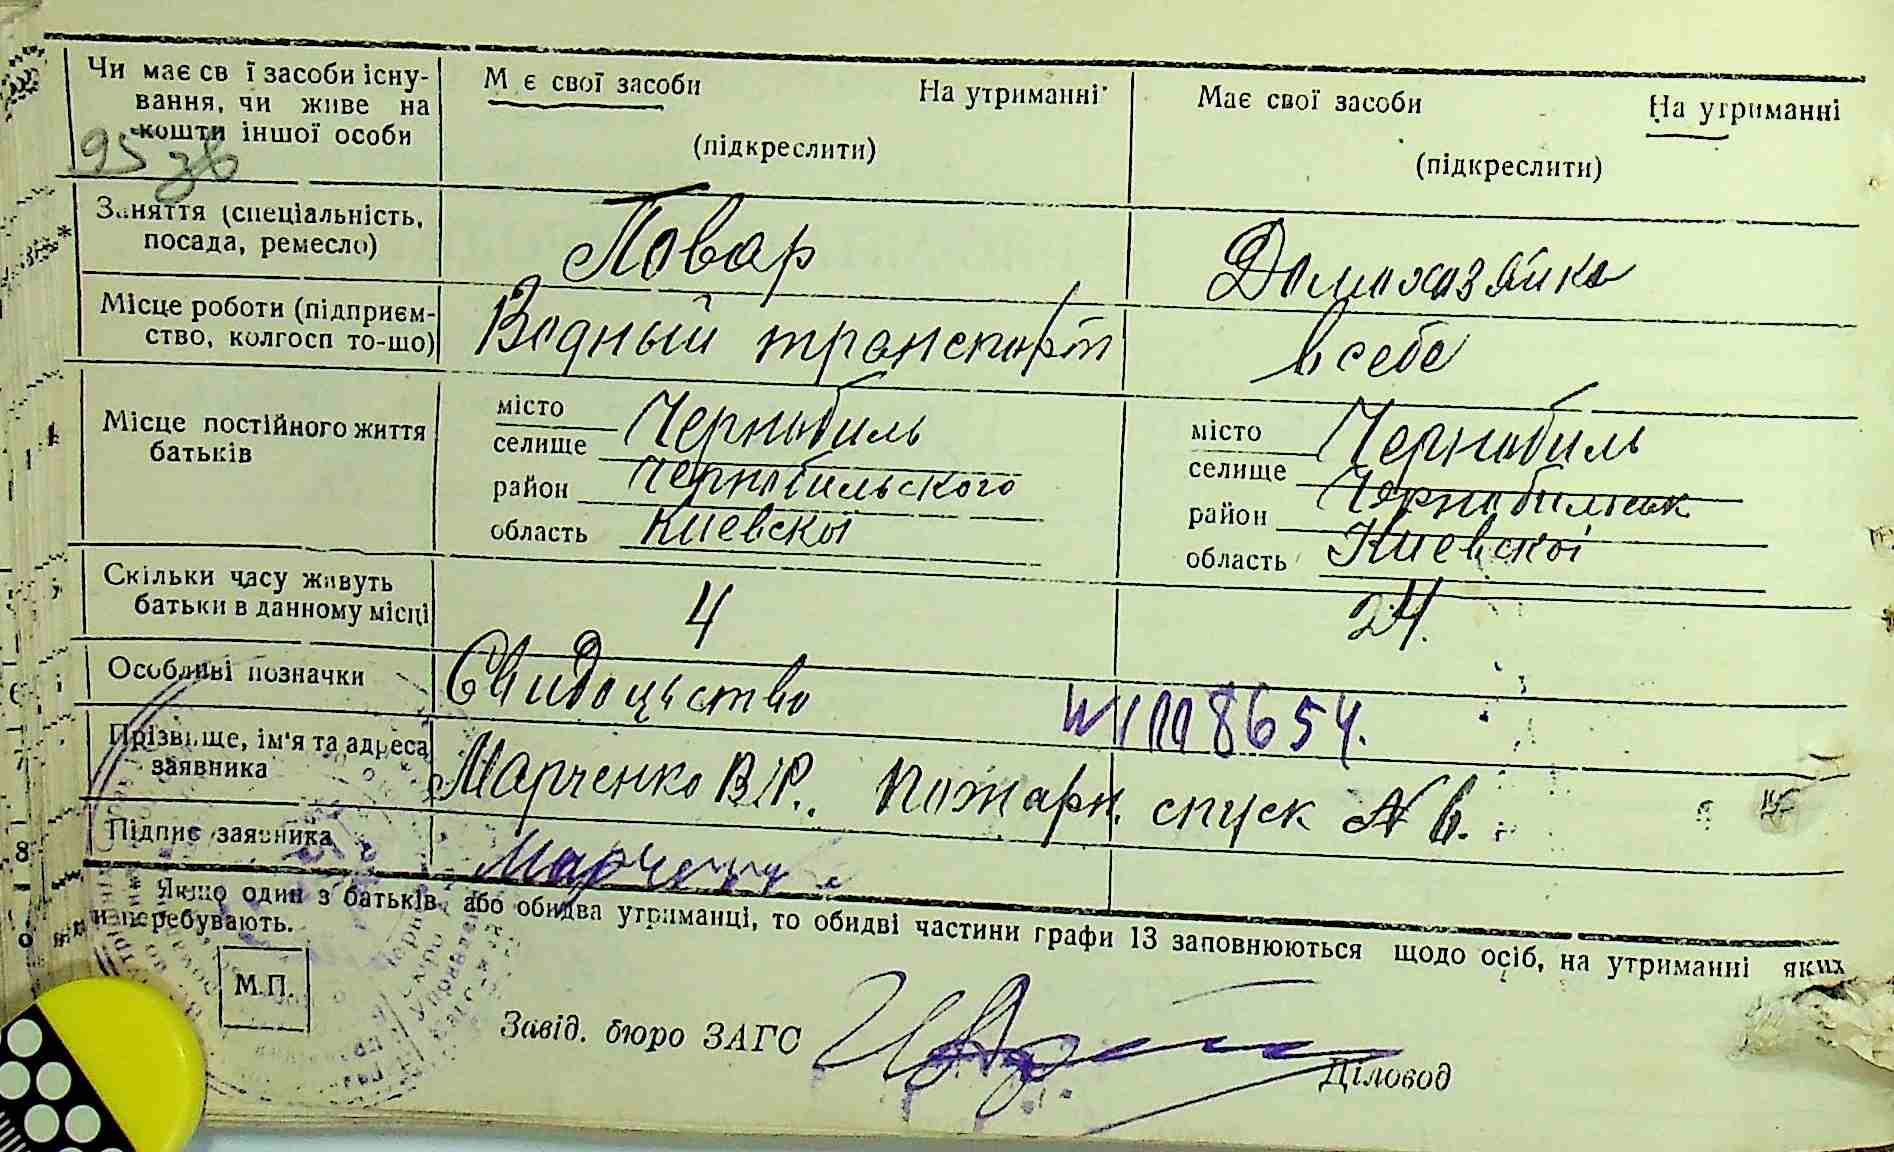 Чи має св ї засоби існу-
вання, чи живе на
кошти іншої особи
М є свої засоби На утриманні
(підкреслити)
Має свої засоби На утриманні
(підкреслити)
95 зв
Заняття (спеціальність,
посада, ремесло)
Повар
Домохазяйка
Місце роботи (підприєм-
ство, колгосп то-що)
Водный транспорт
в себе
Місце постійного життя
батьків
місто
селище Чернобиль
район Чернобильского
область Киевскої
місто
селище Чернобиль
район Чернобильськ
область Киевскої
Скільки часу живуть
батьки в данному місці
4
24.
Особливі позначки
Свидоцьство
8654.
Прізвище, ім'я та адреса
заявника
Марченко В.Р. Пожарн. спуск №6.
Підпис заявника
Марченк
Якщо один з батьків або обидва утриманці, то обидві частини графи 13 заповнюються щодо осіб, на утриманні яких
и перебувають.
М.П.
Завід. бюро ЗАГС
Діловод